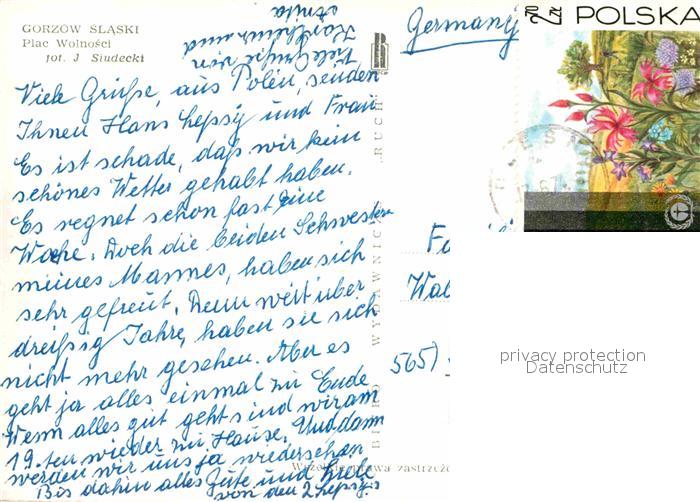 GORZÓW ŚLĄSKI
Plac Wolności
fot. J. Siudecki
Viele Grüße von
Karlheinz und
Anita
Germany
2,70 ZŁ POLSKA
Viele Grüße, aus Polen, senden
Ihnen Hans Lepszy und Frau
Es ist schade, daß wir kein
schönes Wetter gehabt haben.
Es regnet schon fast eine
Woche. Doch die beiden Schwestern
meines Mannes, haben sich
sehr gefreut. Denn weit über
dreißig Jahre, haben sie sich
nicht mehr gesehen. Aber es
geht ja alles einmal zu Ende
Wenn alles gut geht sind wir am
19.ten wieder zu Hause. Und dann
werden wir uns ja wiedersehen
Bis dahin alles Gute und Liebe
von den 2 Lepszy's
BIURO WYDAWNICZE RUCH
Fa
Wal
565)
privacy protection
Datenschutz
Wszelkie prawa zastrzeż